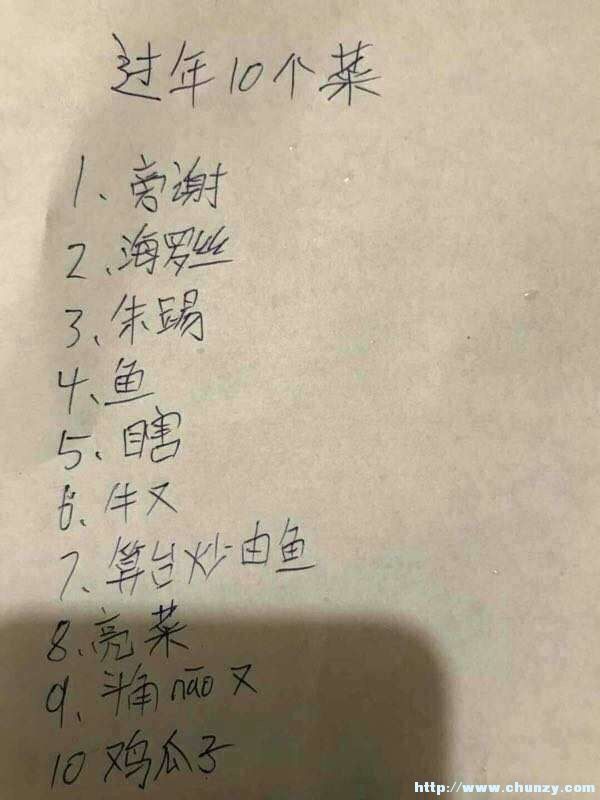 过年10个菜
1、旁谢
2、海罗丝
3、朱踢
4、鱼
5、瞎
6、牛又
7、算台炒由鱼
8、亮菜
9、斗角nāo又
10 鸡瓜子
http://www.chunzy.com